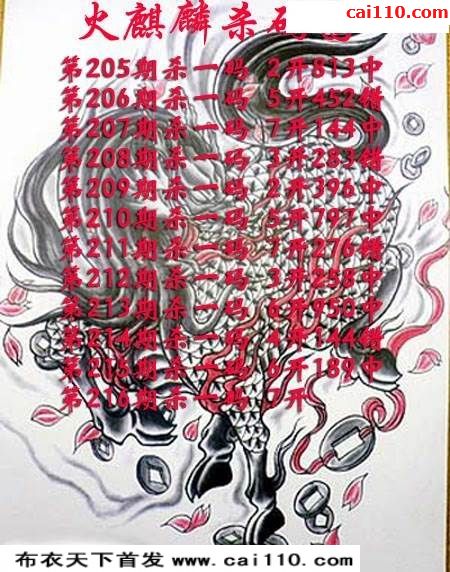 cai110.com
火麒麟杀码
第205期杀一码 2开813中
第206期杀一码 5开452错
第207期杀一码 7开144中
第208期杀一码 3开283错
第209期杀一码 2开396中
第210期杀一码 5开797中
第211期杀一码 7开276错
第212期杀一码 3开258中
第213期杀一码 6开950中
第214期杀一码 4开144错
第215期杀一码 6开189中
第216期杀一码 7开
布衣天下首发 www.cai110.com